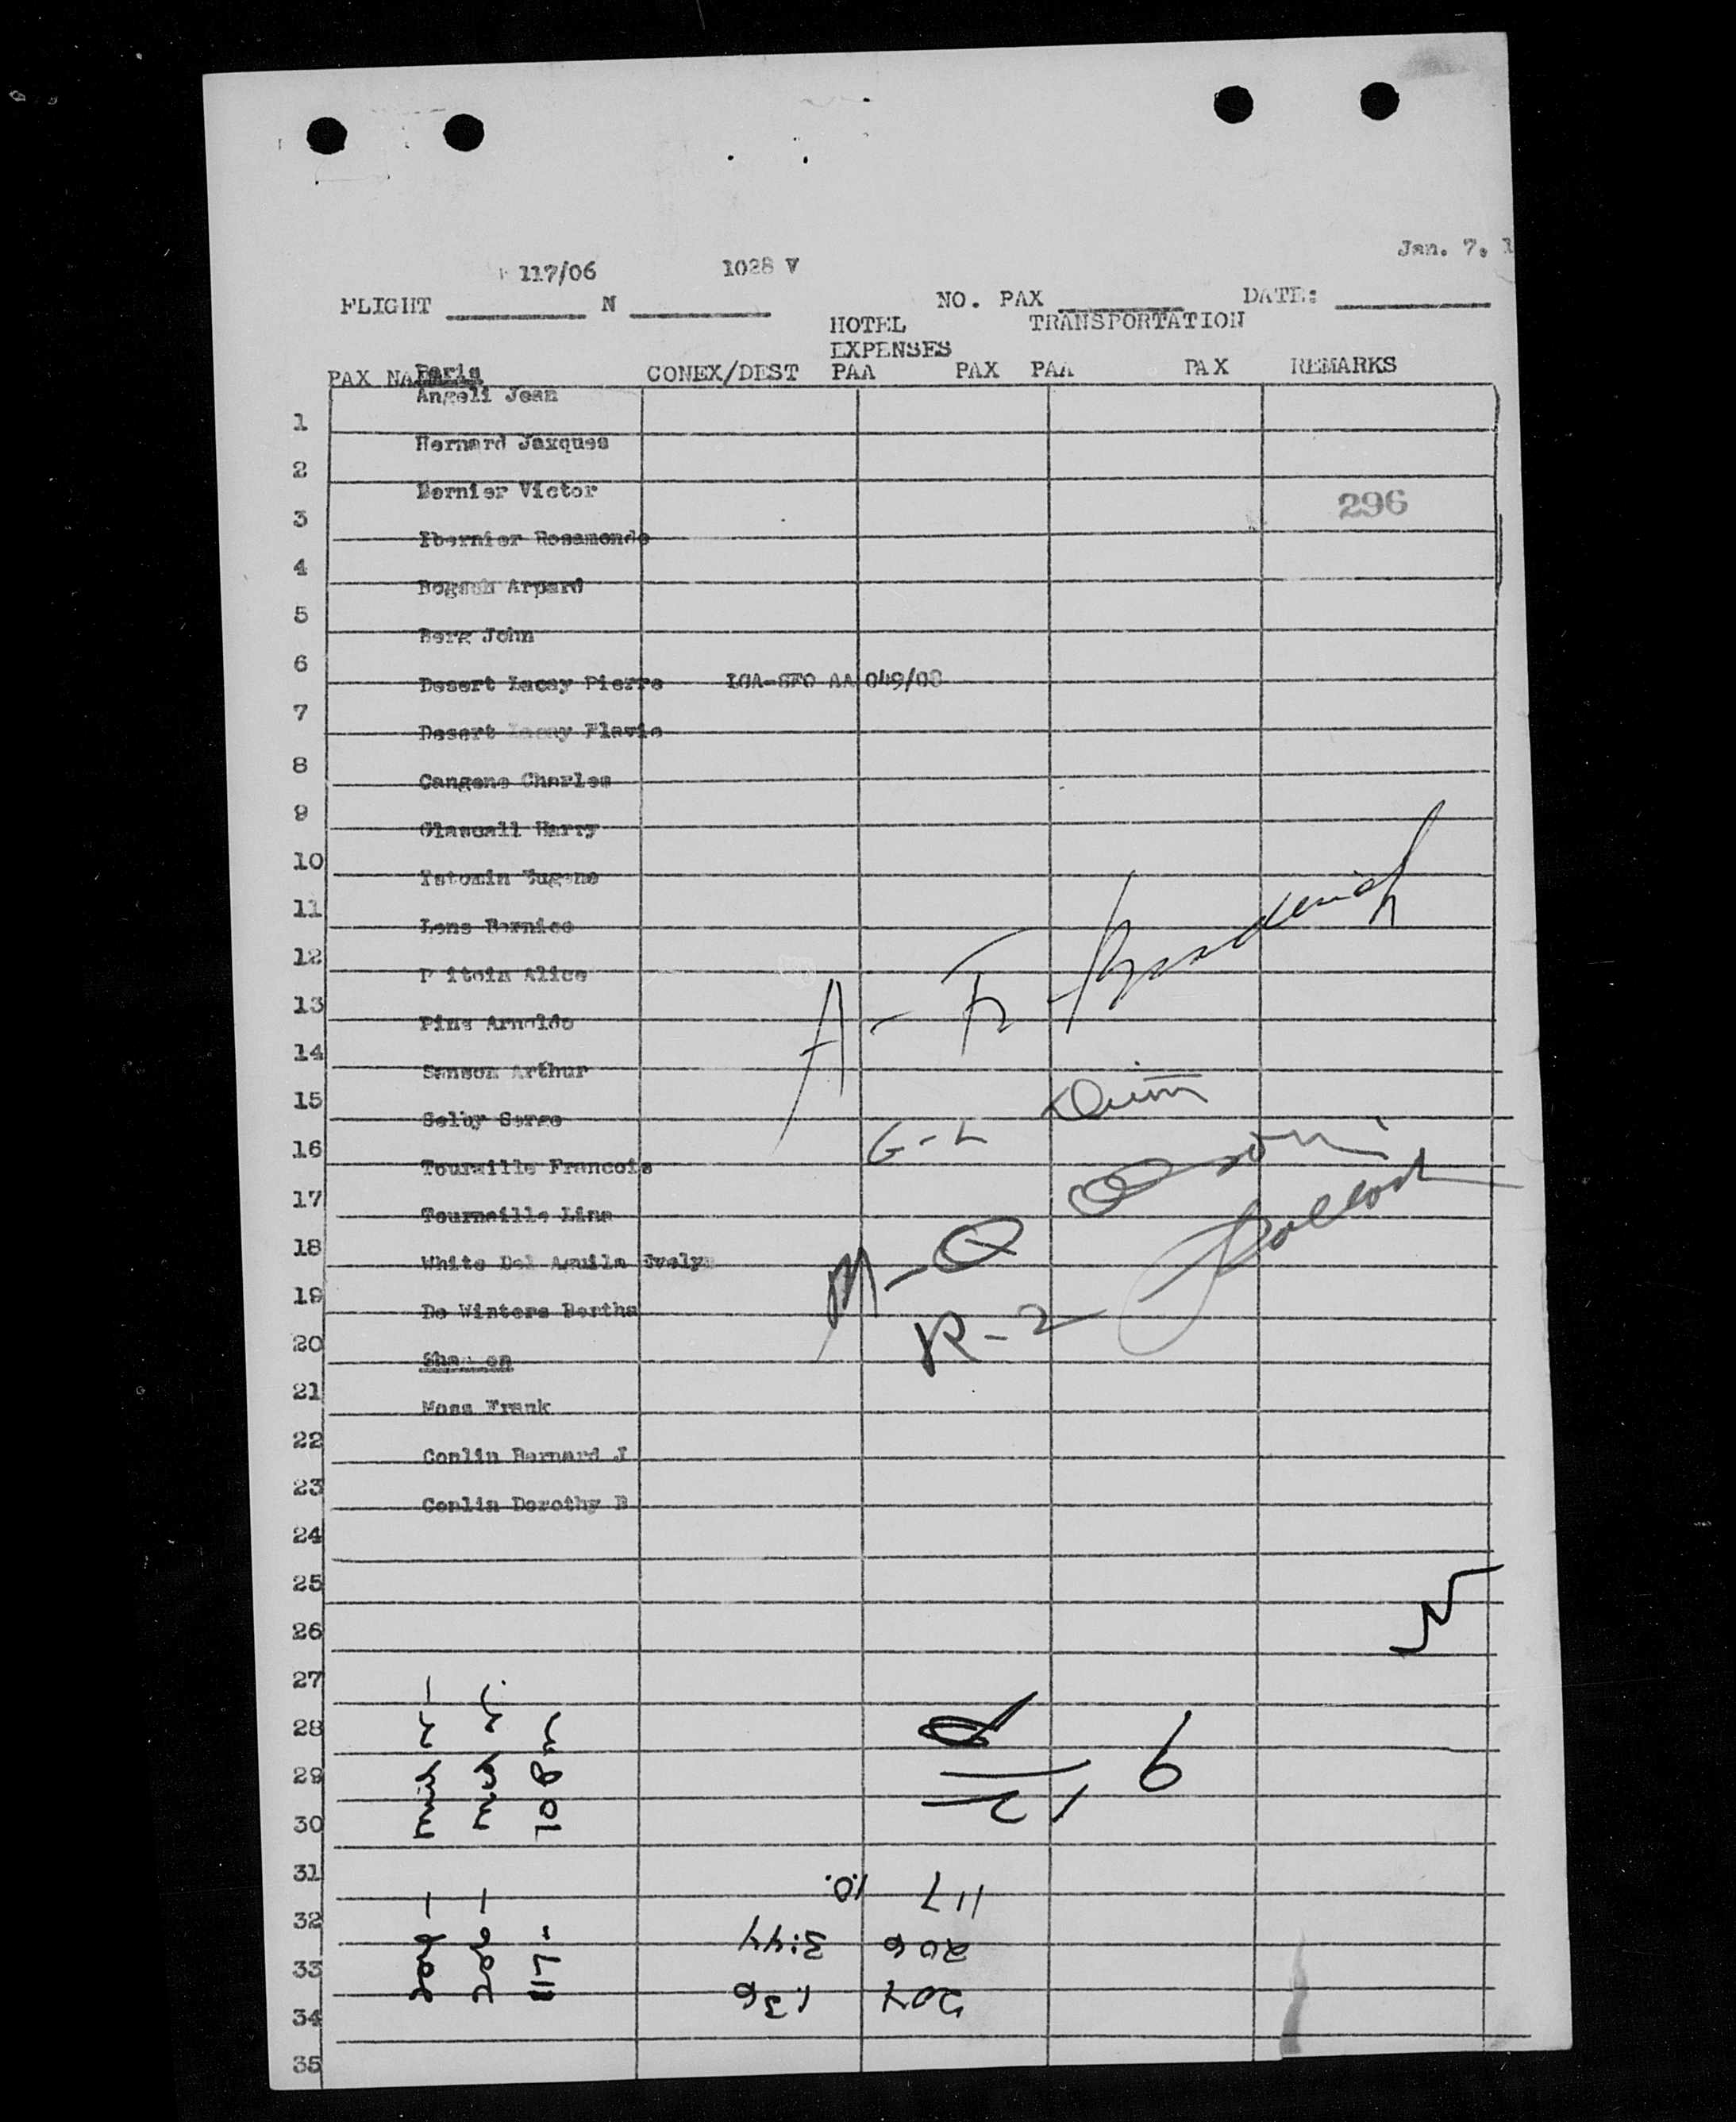 Jan. 7, 1
117/06 1028 V
FLIGHT N NO. PAX DATE:
HOTEL TRANSPORTATION
EXPENSES
PAX NAME Paris CONEX/DEST PAA PAX PAA PAX REMARKS
Angeli Jean
1
Bernard Jaxques
2
Bernier Victor
3 296
Rosamonde
4
Arpard
5
Berg John
6
Desert Lacay Pierre LGA-SFO AA 049/08
7
Desert Lacay Flavie
8
Cangene Charles
9
Glascall Harry
10
Istomin Eugene
11
Lens Bernice
12
Alice
13
Pins Arnoldo
14
Sanson Arthur
15
Selby Serge
16 G-L
Tournille Francois
17
Tourneille Line
18
White Del Aguila Evelyn
19 M-Q
De Winters Bertha
20 R-Z
Shannon
21
Moss Frank
22
Conlin Bernard J
23
Conlin Dorothy B
24
25
26
27
28
29
30
31
117 10.
32
206 3:44
33
207 1:36
34
35
12 9
206 -
206 -
117 - 108